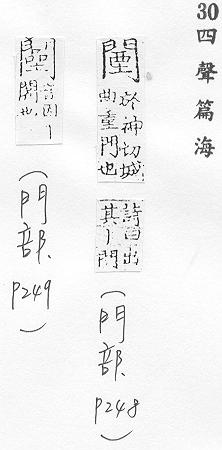 30四聲篇海
闉
於神切城
曲重門也
詩曰出
其丨門
(門部 P248)
音因
也
(門部 P249)